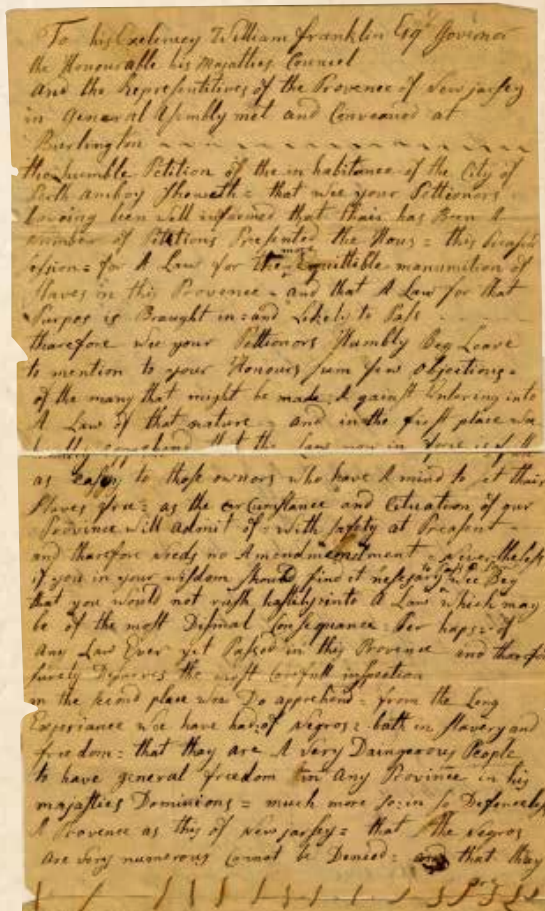 To his Exelencey William franklin Esqr Governor
the Honourable his Majasties Councel
And the Representitives of the Provence of New jarsey
in General Asembly met and Conveaned at
Burlington
the Humble Petition of the in habitance of the City of
Perth Amboy Sheweth = that wee your Pettionors
haveing been well informed that thair has Been A
number of Petitions Presented the Hous = this
= for A Law for the more Equittible manumition of
Slaves in this Provence - and that A Law for that
Purpos is Braught in = and Likely to Pass
tharefore wee your Pettionors Humbly Beg Leave
to mention to your Honours sum few objections =
of the many that might be made A gainst Entering into
A Law of that nature = and in the first place wee
that the Law now in
as easey to those owners who have A mind to set thair
Slaves free = as the and Cituation of our
Province will admit of = with safety at Preasent -
and tharefore needs no = nevertheless
if you in your wisdom should find it nesesary wee Beg
that you would not rush hastely into A Law which may
be of the most Dismal Consequance = Per haps = of
Any Law Ever yet Passed in this Provence and tharefore
surely Deserves the most carefull inspection
in the second place wee Do apprehend = from the Long
Expariance wee have had of Negros = bath in Slavery and
freedom = that thay are A very Daingerous People
to have general freedom in Any Province in his
majasties Dominions = much more so = in so Defenceless
A Provence as this of New jarsey = that the Negros
are very numerous Cannot be Denied = and that thay